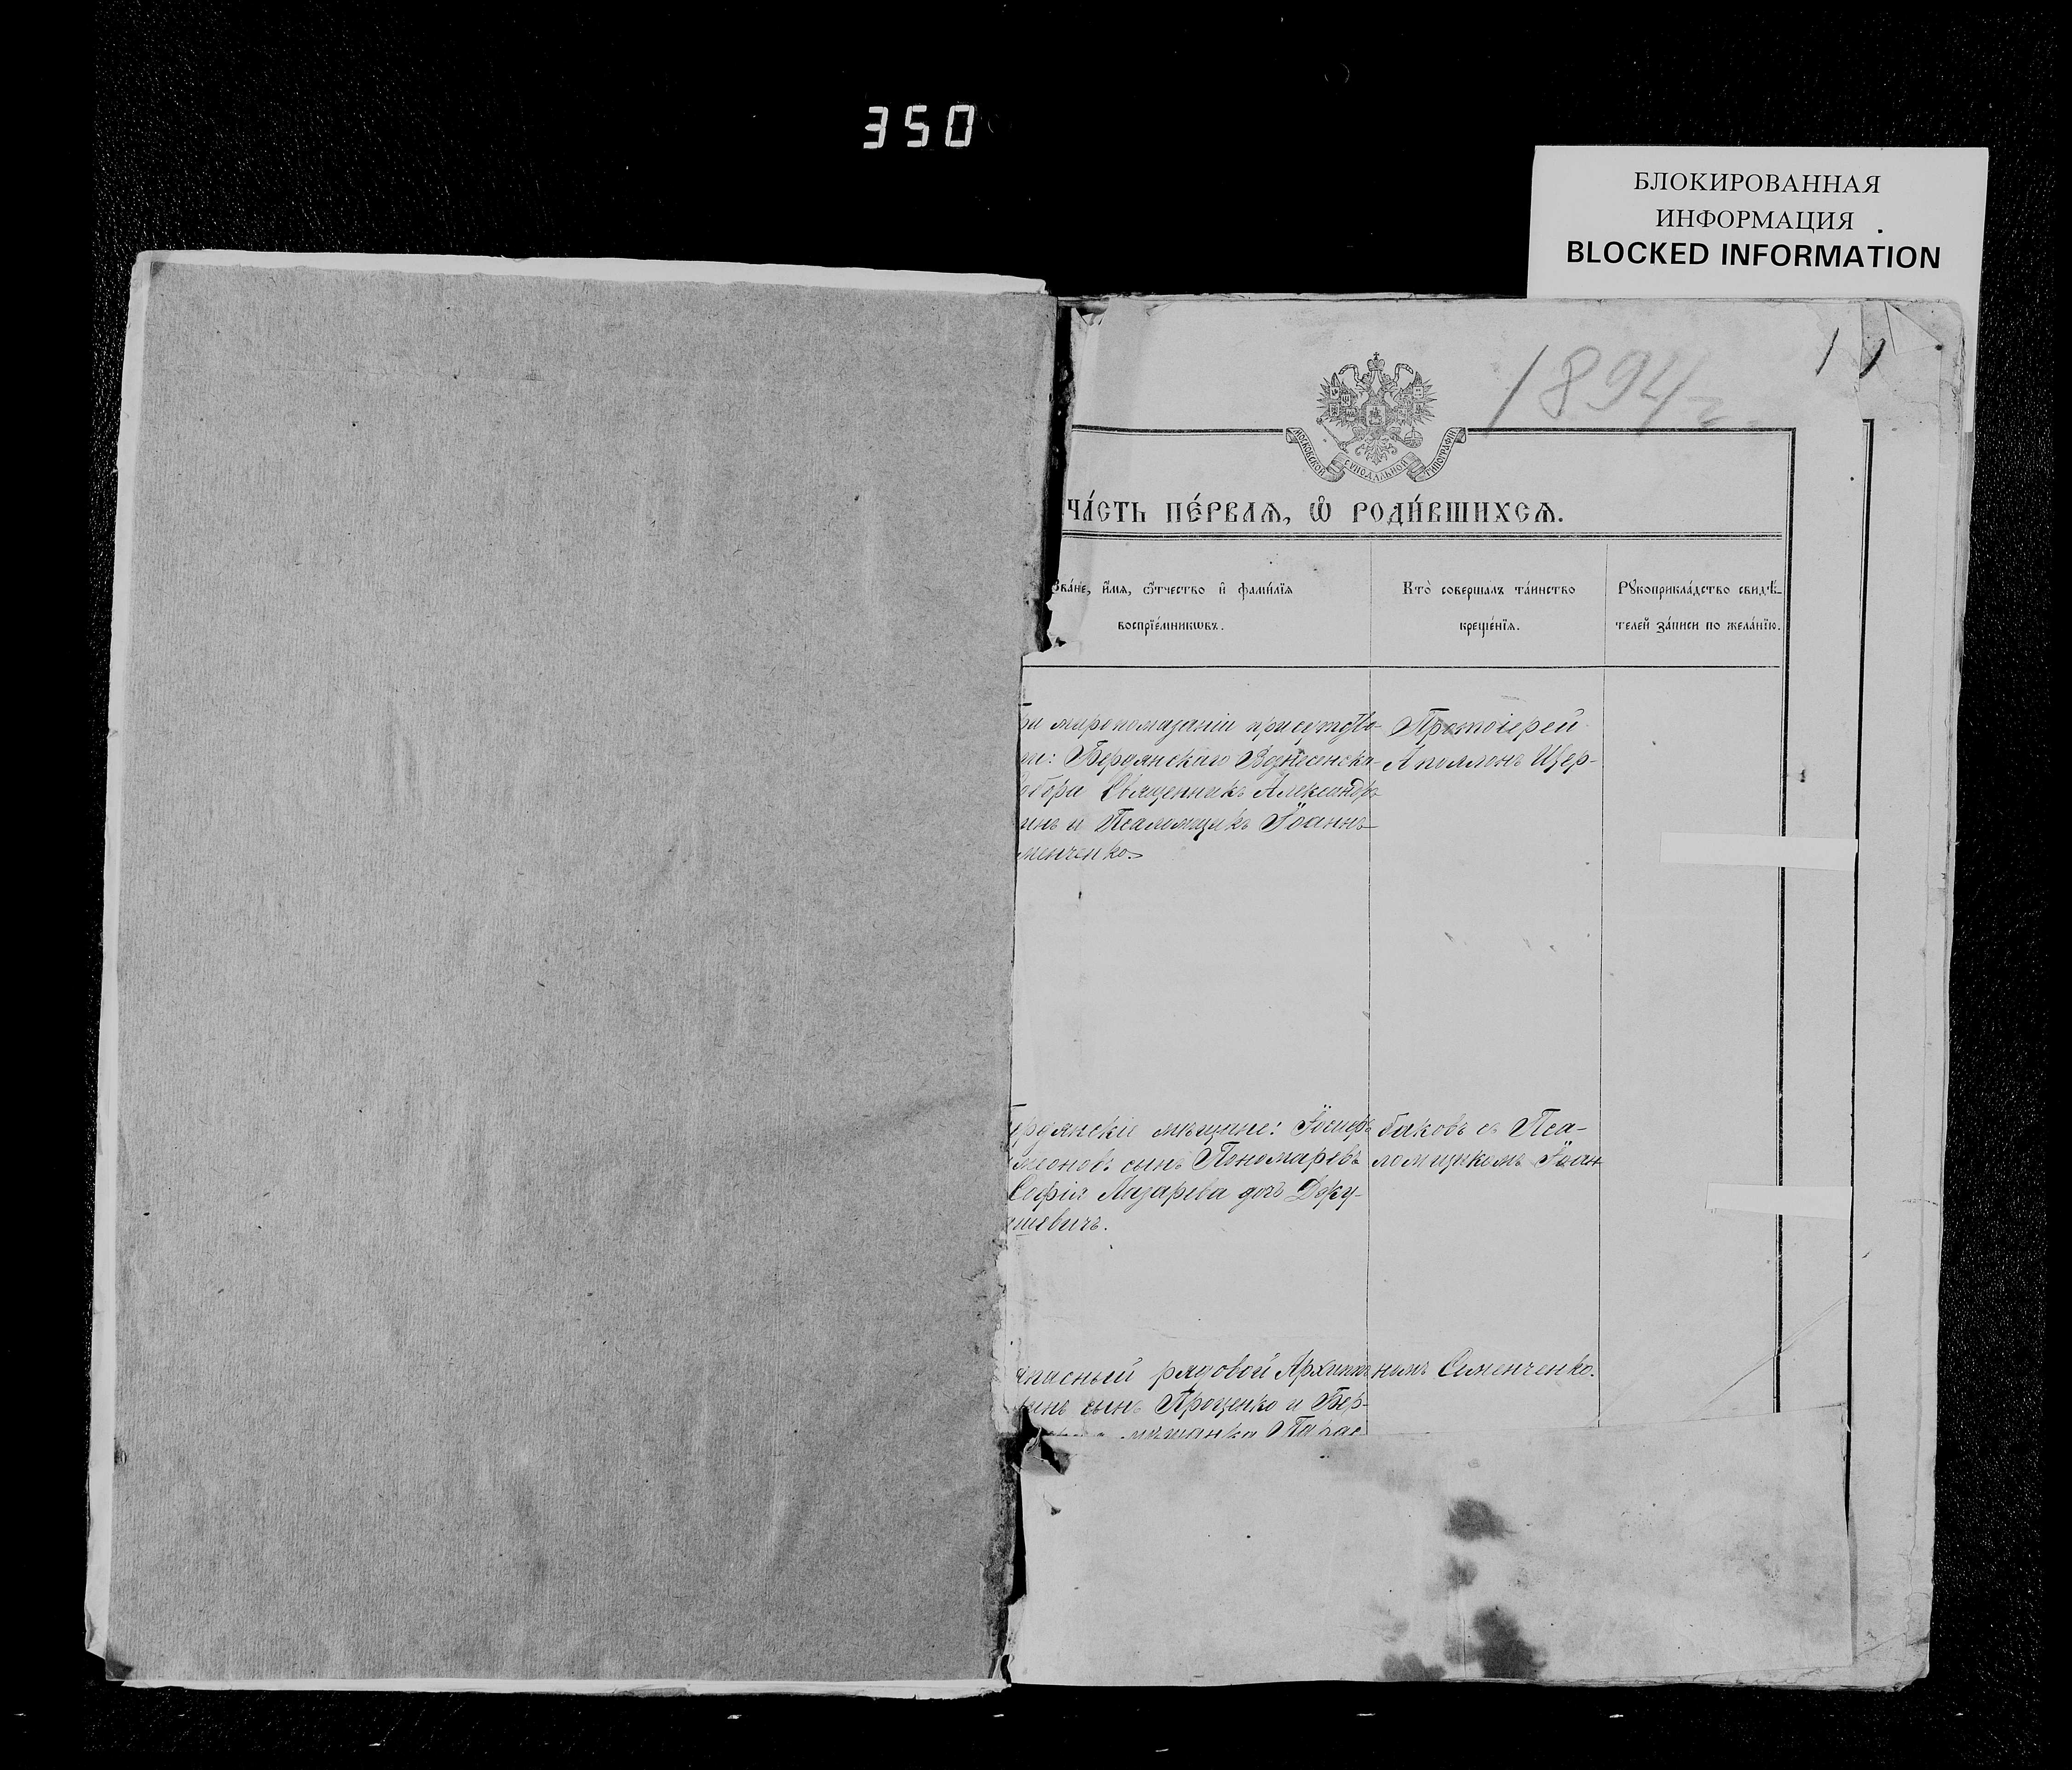 350
БЛОКИРОВАННАЯ
ИНФОРМАЦИЯ
BLOCKED INFORMATION
1894 г.
1 1
МОСКОВСКОЙ СѴНОДАЛЬНОЙ ТИПОГРАФІИ
ЧА́СТЬ ПЕ́РВАѦ, Ѽ РОДИ́ВШИХСѦ.
Зва́нїе, и҆́мѧ, ѻ҆́тчество и҆ фами́лїѧ
воспрїе́мникѡвъ.
Кто̀ соверша́лъ та́инство
креще́нїѧ.
Рꙋкоприкла́дство свидѣ́-
телей за́писи по жела́нїю.
при миропомазаніи присутство-
ли: Бердянскаго Вознесенска-
Собора Священникъ Александръ
инъ и Псаломщикъ Іоаннъ
менченко.
Протоіерей
Аполлонъ Цвер-
ердянскіе мѣщане: Іосифъ
меоновъ сынъ Пономаревъ
Софія Лазарева дочь Доку-
шевичъ.
баковъ съ Пса-
ломщикомъ Іоан
апасный рядовой Архипъ
инъ сынъ Проценко и Бер-
мѣщанка Парас
номъ Семенченко.